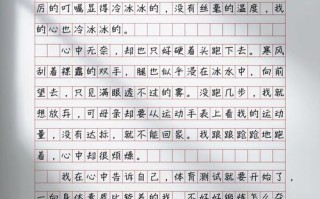 厉的叮嘱显得冷冰冰的，没有丝毫的温度，我
的心也冷冰冰的。
心中无奈，却也只好硬着头跑下去。寒风
刮着裸露的双手，腿也似乎浸在冰水中，向前
望去，只见满眼透不过的雾。没跑几步，我就
想放弃，可母亲却要从运动手表上看我的运动
量，没有达标，就不能回家。我踉踉跄跄地跑
着，心中却很烦燥。
我在心中告诉自己，体育测试就要开始了，
一向身体素质比较差的我，不好好锻炼怎么会